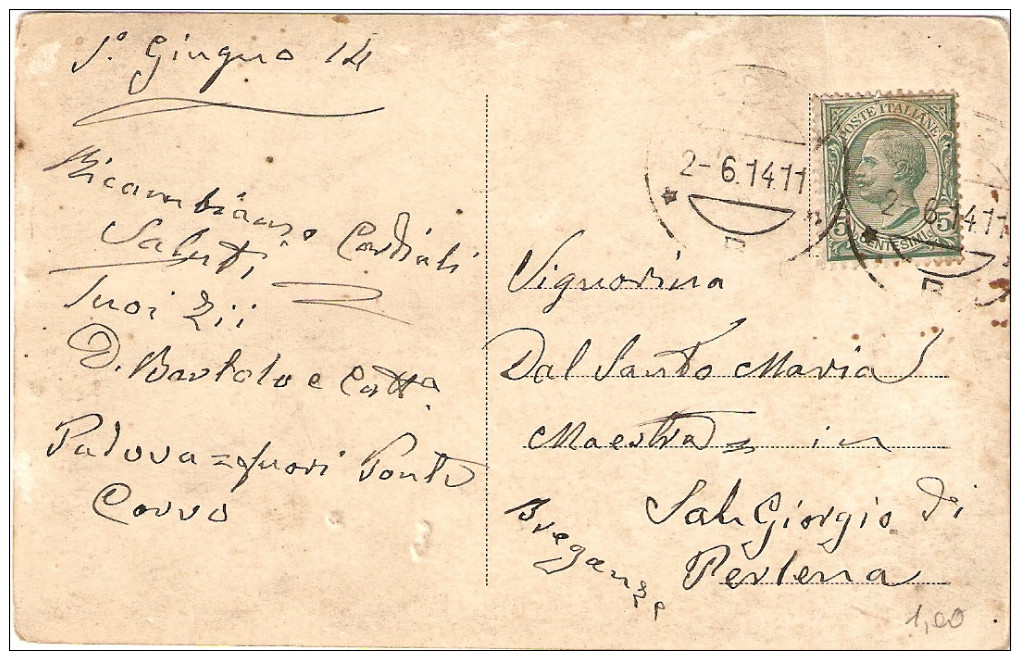 1° Giugno 14
Ricambiano Cordiali
Saluti
Tuoi Zii
D. Bortolo e Catta
Padova = fuori Ponte
Corvo
2-6.14.11
POSTE ITALIANE
5 CENTESIMI 5
2-6.14.11
Signorina
Dal Santo Maria
Maestra = in
San Giorgio di
Perlena
Breganze
1,00